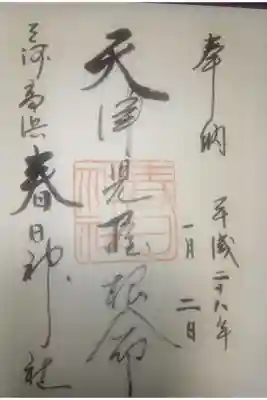 奉納
平成二十八年
一月二日
天津児屋根命
三河高浜
春日神社